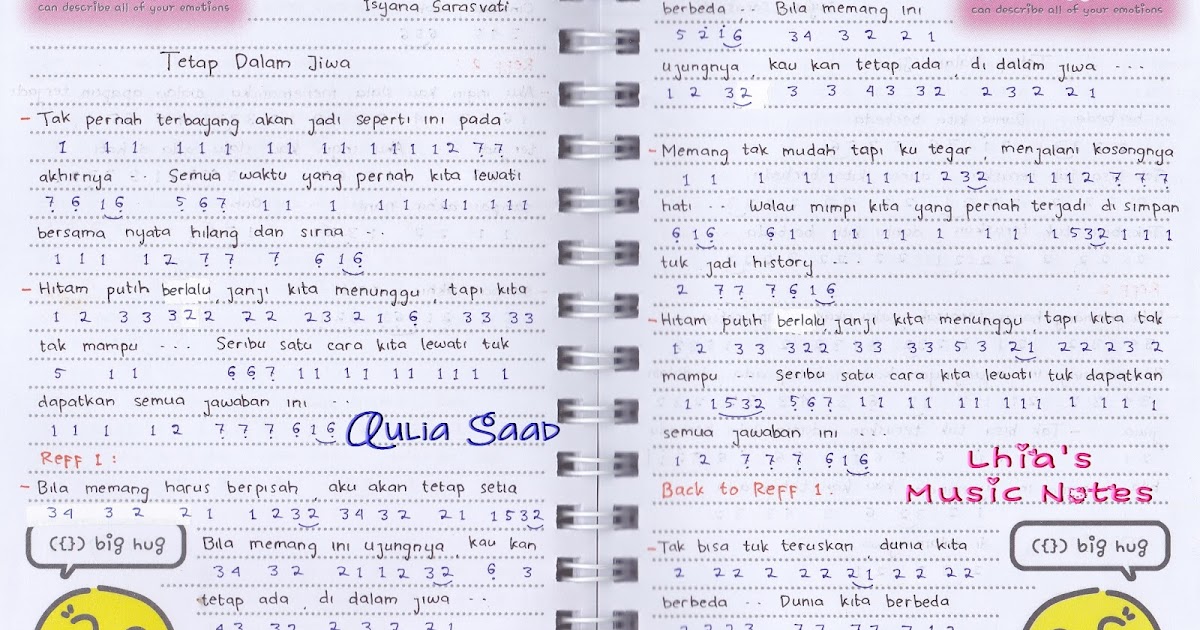 can describe all of your emotions
Isyana Sarasvati
Tetap Dalam Jiwa
- Tak pernah terbayang akan jadi seperti ini pada
1 1 1 1 1 1 1 1 1 1 1 1 1 1 2 7̣ 7̣
akhirnya -- Semua waktu yang pernah kita lewati
7̣ 6̣ 1 6̣ 5̣ 6̣ 7̣ 1 1 1 1 1 1 1 1 1 1
bersama nyata hilang dan sirna --
1 1 1 1 2 7̣ 7̣ 7̣ 6̣ 1 6̣
- Hitam putih berlalu, janji kita menunggu, tapi kita
1 2 3 3 3 2 2 2 2 2 3 2 1 6̣ 3 3 3 3
tak mampu --- Seribu satu cara kita lewati tuk
5 1 1 6̣ 6̣ 7̣ 1 1 1 1 1 1 1 1 1 1
dapatkan semua jawaban ini --
1 1 1 1 2 7̣ 7̣ 7̣ 6̣ 1 6̣
Aulia Saad
Reff 1 :
- Bila memang harus berpisah, aku akan tetap setia
3 4 3 2 2 1 1 2 3 2 3 4 3 2 2 1 1 5 3 2
({}) big hug
Bila memang ini ujungnya, kau kan
3 4 3 2 2 1 1 2 3 2 6̣ 3
tetap ada, di dalam jiwa --
4 3 3 2 2 3 2 2 1
can describe all of your emotions
berbeda -- Bila memang ini
5 2̇ 1̇ 6 3 4 3 2 2 1
ujungnya, kau kan tetap ada, di dalam jiwa ---
1 2 3 2 3 3 4 3 3 2 2 3 2 2 1
- Memang tak mudah tapi ku tegar, menjalani kosongnya
1 1 1 1 1 1 1 1 2 3 2 1 1 1 2 7̣ 7̣ 7̣
hati -- Walau mimpi kita yang pernah terjadi di simpan
6̣ 1 6̣ 6̣ 1 1 1 1 1 1 1 1 1 5 3 2 1 1 1
tuk jadi history ---
2 7̣ 7̣ 7̣ 6̣ 1 6̣
- Hitam putih berlalu, janji kita menunggu, tapi kita tak
1 2 3 3 3 2 2 3 3 3 3 5 3 2 1 2 2 2 3 2
mampu -- Seribu satu cara kita lewati tuk dapatkan
1 1 5 3 2 5̣ 6̣ 7̣ 1 1 1 1 1 1 1 1 1 1 1 1 1
semua jawaban ini ---
1 2 7̣ 7̣ 7̣ 6̣ 1 6̣
Lhia's
Music Notes
Back to Reff 1.
- Tak bisa tuk teruskan dunia kita
2 2 2 2 2 2 2 1 2 2 2 2
({}) big hug
berbeda -- Dunia kita berbeda